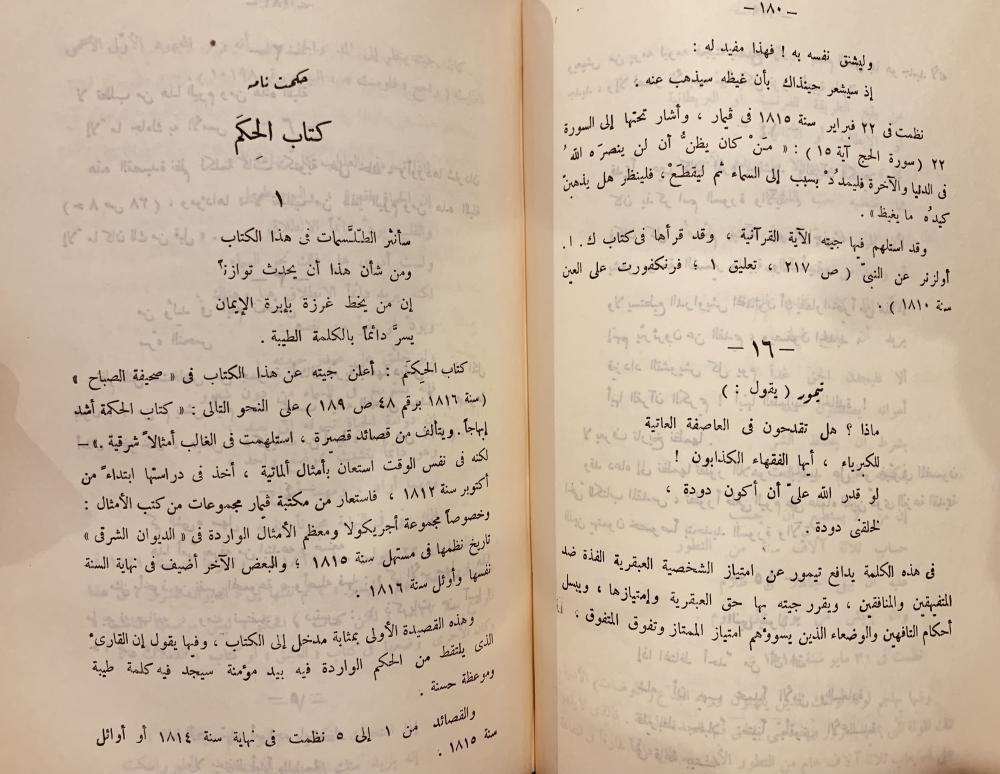 – ١٨٠ –
وليشنق نفسه به ! فهذا مفيد له :
إذ سيشعر حينذاك بأن غيظه سيذهب عنه .
نظمت فى ٢٢ فبراير سنة ١٨١٥ فى ڤيمار ، وأشار تحتها إلى السورة
٢٢ (سورة الحج آية ١٥) : « مَنْ كان يظنُّ أن لن ينصرَه اللهُ
فى الدنيا والآخرة فليمدُدْ بسبب إلى السماء ثم ليقطَعْ ، فلينظر هل يذهبنّ
كيدُه ما يغيظ » .
وقد استلهم فيها جيته الآية القرآنية ، وقد قرأها فى كتاب ك . ا .
أولزنر عن النبىّ ( ص ٢١٧ ، تعليق ١ ؛ فرنكفورت على العين
سنة ١٨١٠ ) .
– ١٦ –
تيمور ( يقول : )
ماذا ؟ هل تقدحون فى العاصفة العاتية
للكبرياء ، أيها الفقهاء الكذابون !
لو قدر الله علىّ أن أكون دودة ،
لخلقنى دودة .
فى هذه الكلمة يدافع تيمور عن امتياز الشخصية العبقرية الفذة ضد
المتفيهقين والمنافقين ، ويقرر جيته بها حق العبقرية وامتيازها ، ويبسل
أحكام التافهين والوضعاء الذين يسوؤهم امتياز الممتاز وتفوق المتفوق ،
حكمت نامه
كتاب الحِكَم
١
سأنثر الطلَّسمات فى هذا الكتاب
ومن شأن هذا أن يحدث توازناً
إن من يخط غرزة بإبرة الإيمان
يسرَّ دائماً بالكلمة الطيبة .
كتاب الحِكَم : أعلن جيته عن هذا الكتاب فى « صحيفة الصباح »
(سنة ١٨١٦ برقم ٤٨ ص ١٨٩ ) على النحو التالى : « كتاب الحكمة أشد
إبهاجاً . ويتألف من قصائد قصيرة ، استلهمت فى الغالب أمثالاً شرقية . » –
لكنه فى نفس الوقت استعان بأمثال ألمانية ، أخذ فى دراستها ابتداءً من
أكتوبر سنة ١٨١٢ ، فاستعار من مكتبة ڤيمار مجموعات من كتب الأمثال :
وخصوصاً مجموعة أجريكولا ومعظم الأمثال الواردة فى « الديوان الشرقى »
تاريخ نظمها فى مستهل سنة ١٨١٥ ؛ والبعض الآخر أضيف فى نهاية السنة
نفسها وأوائل سنة ١٨١٦ .
وهذه القصيدة الأولى بمثابة مدخل إلى الكتاب ، وفيها يقول إن القارئ
الذى يلتقط من الحكم الواردة فيه بيد مؤمنة سيجد فيه كلمة طيبة
وموعظة حسنة .
والقصائد من ١ إلى ٥ نظمت فى نهاية سنة ١٨١٤ أو أوائل
سنة ١٨١٥ .